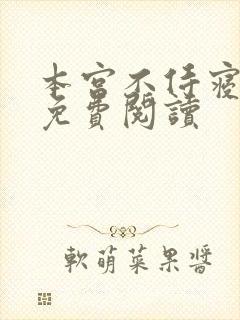 本宮不侍寢
免費閱讀
軟萌菜果醬